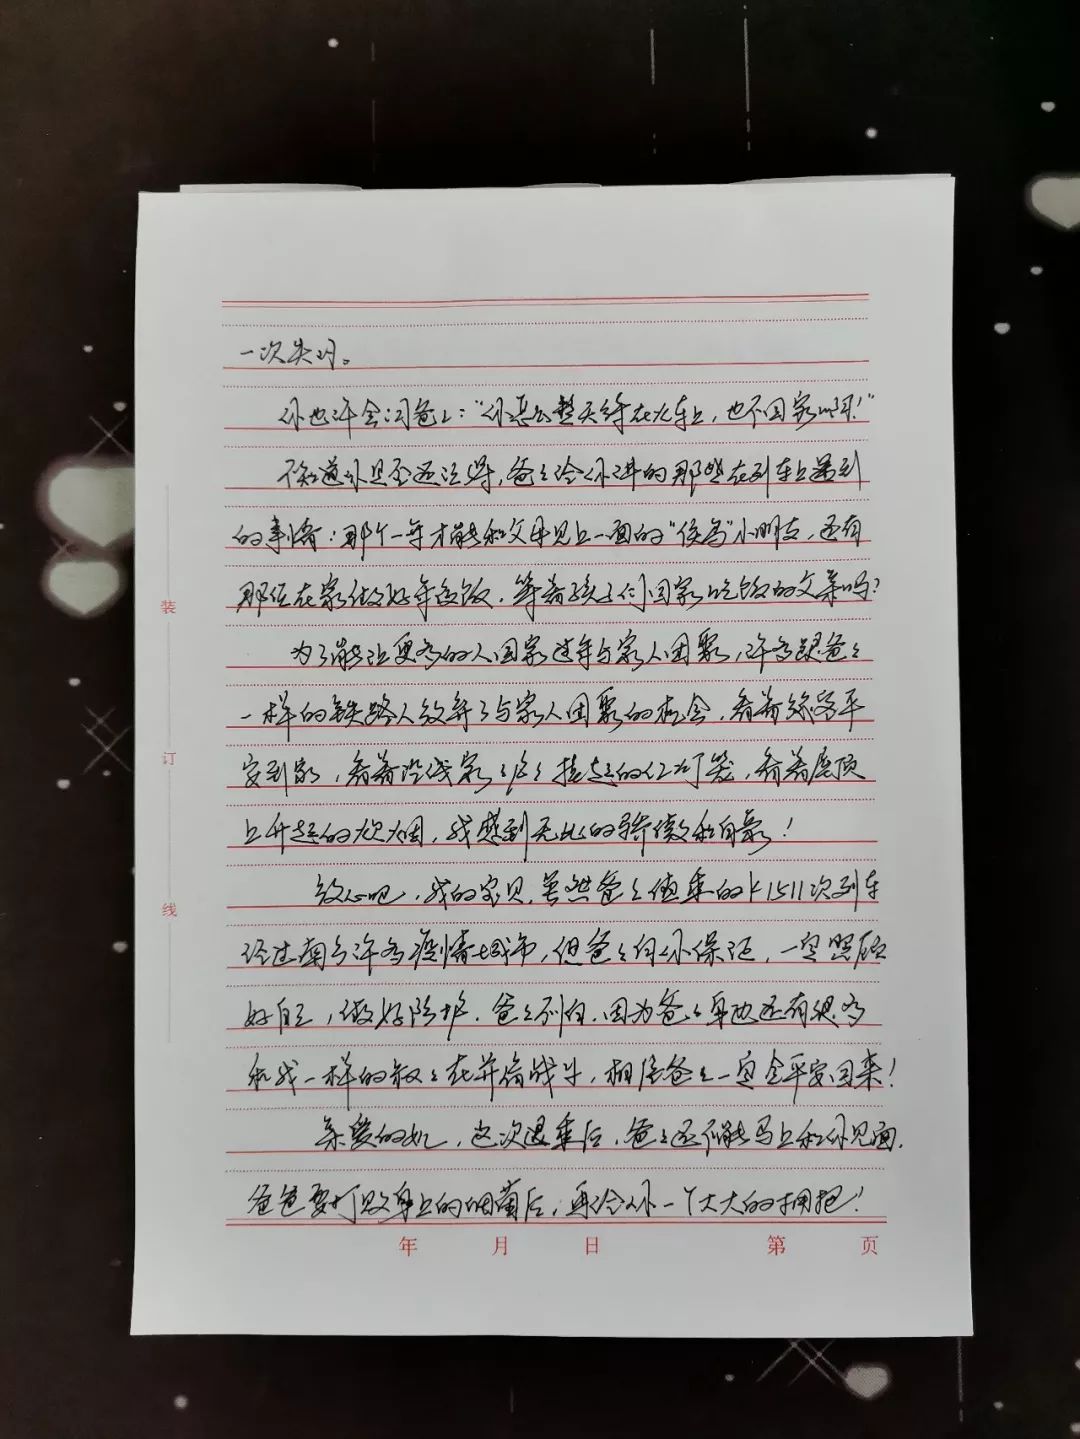 一次失约。
你也许会问爸爸："你怎么整天待在火车上，也不回家啊！"
不知道你是否还记得，爸爸给你讲的那些在列车上遇到
的事情：那个一年才能和父母见上一面的"候鸟"小朋友，还有
那位在家做好年夜饭，等着孩子们回家吃饭的父亲吗？
为了能让更多的人回家过年与家人团聚，许多跟爸爸
一样的铁路人放弃了与家人团聚的机会，看着旅客平
安到家，看着沿线家家户户挂起的红灯笼，看着屋顶
上升起的炊烟，我感到无比的骄傲和自豪！
放心吧，我的宝贝，虽然爸爸值乘的K1511次列车
经过南方许多疫情城市，但爸爸向你保证，一定照顾
好自己，做好防护。爸爸不怕，因为爸爸身边还有很多
和我一样的叔叔在并肩战斗，相信爸爸一定会平安回来！
亲爱的，这次退乘后，爸爸还不能马上和你见面，
爸爸要打败身上的细菌后，再给你一个大大的拥抱！
年 月 日 第 页
装
订
线